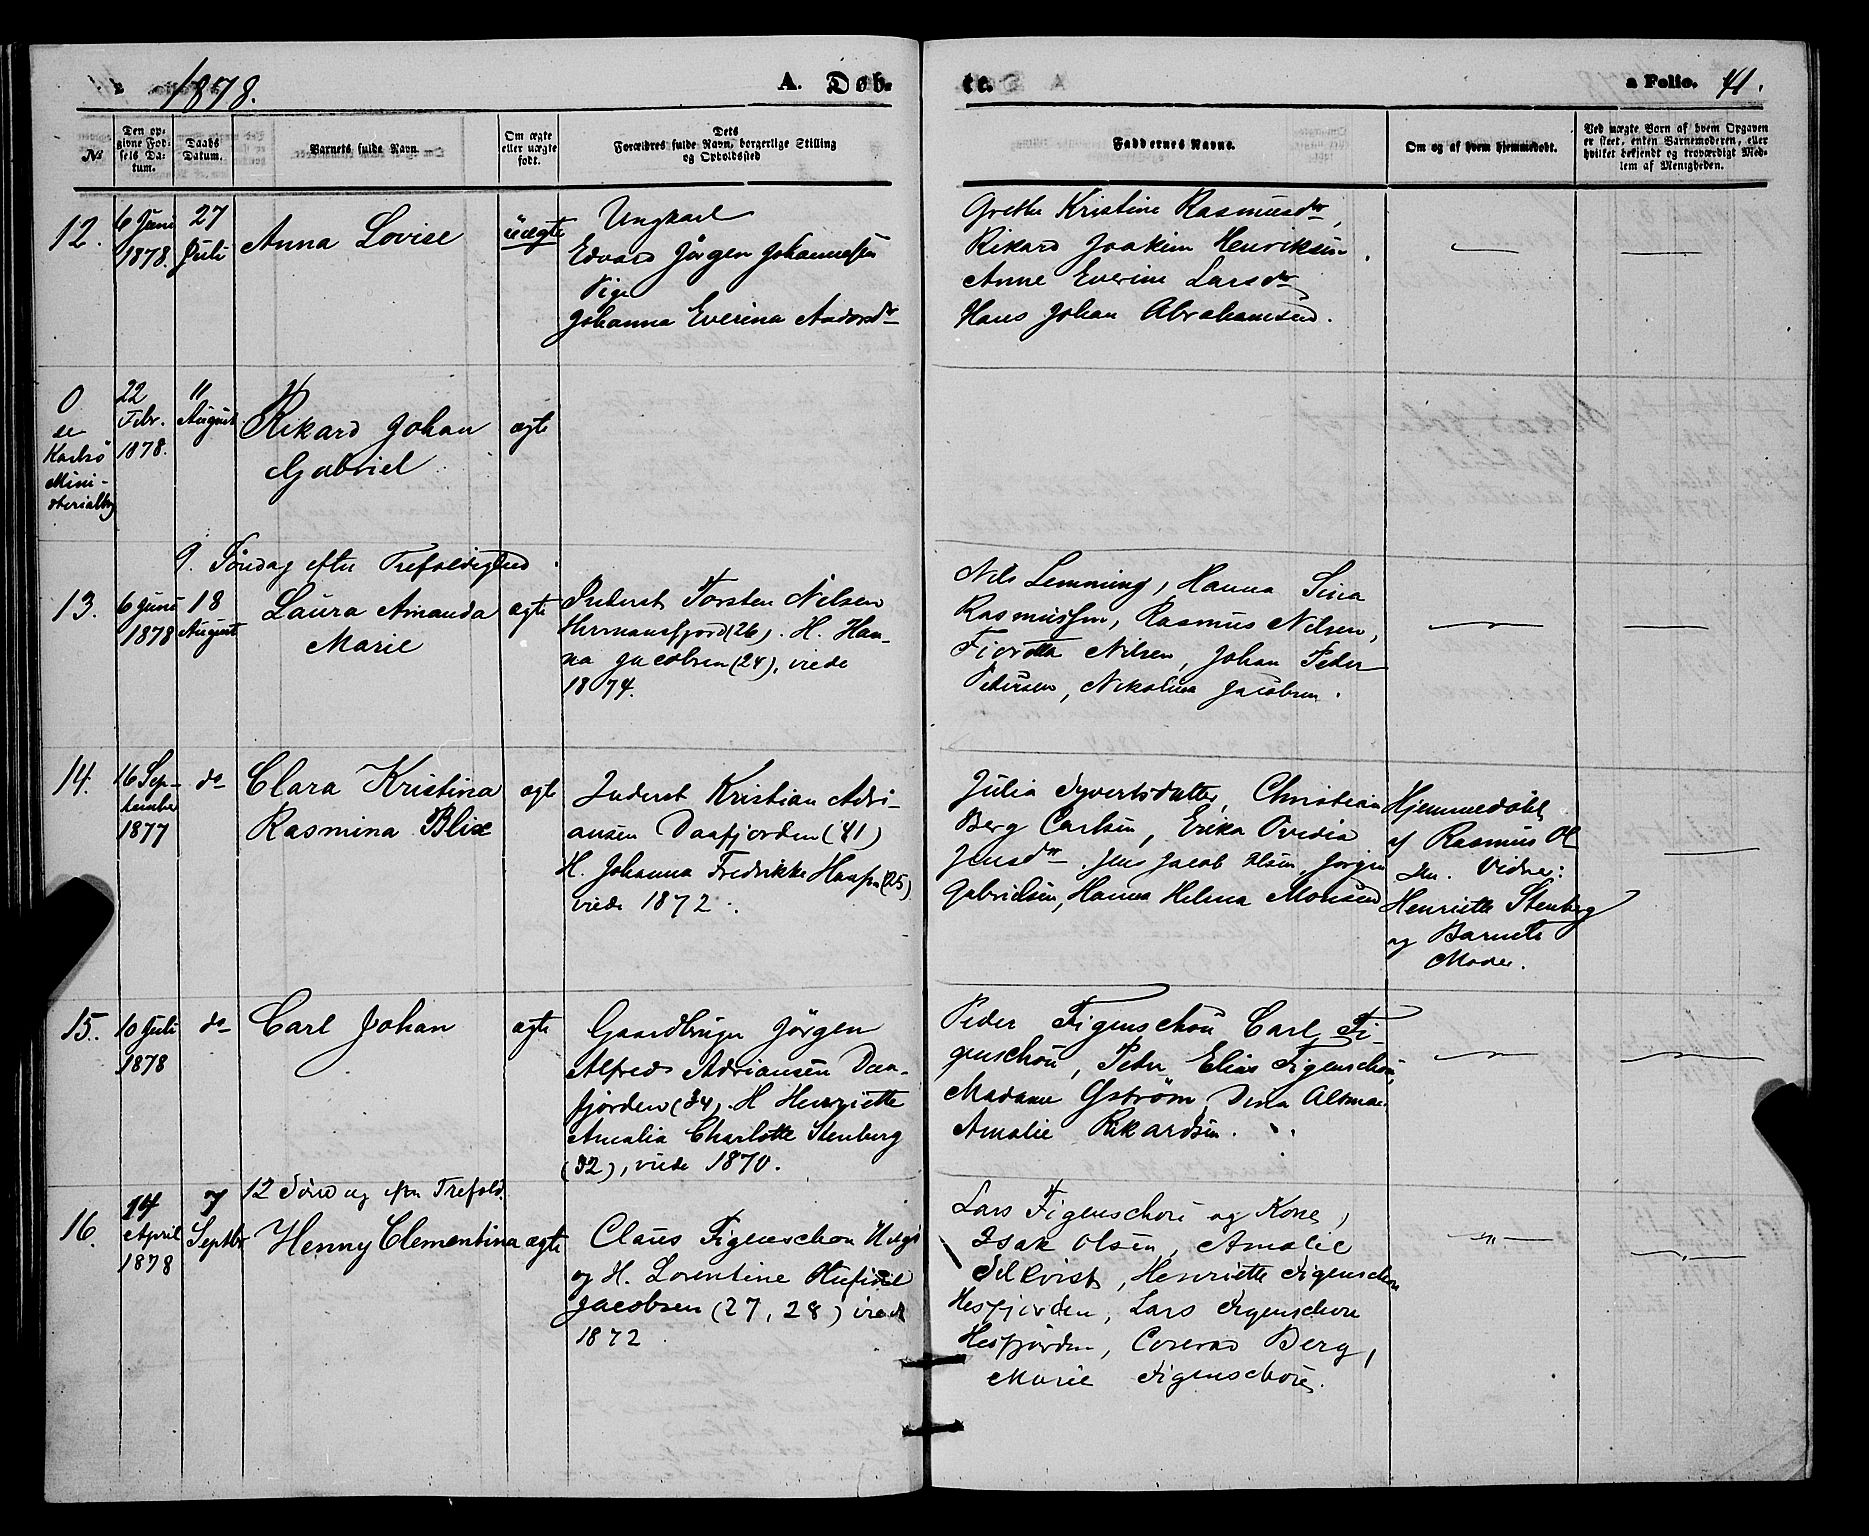 1878.
A. Døb-
te.
a Folio. 41.
№
Den op-
givne Fød-
sels Da-
tum.
Daabs
Datum.
Barnets fulde Navn.
Om ægte
eller uægte
født.
Dets
Forældres fulde Navn, borgerlige Stilling
og Opholdssted
Faddernes Navne.
Om og af hvem hjemmedøbt.
Ved uægte Børn af hvem Opgaven
er skeet, enten Barnemoderen, eller
hvilket bekjendt og troværdigt Med-
lem af Menigheden.
12.
6 Juni
1878.
27
Juli
Anna Lovise
uægte
Ungkarl
Edvard Jørgen Johannesen
Pige
Johanna Everina Andorsdr
Grethe Kristine Rasmusdr,
Rikard Joakim Henriksen,
Anne Everine Larsdr
Hans Johan Abrahamsen.
0
se
Karlsö
Mini-
sterialbog
22
Febr.
1878.
11
August
Rikard Johan
Gabriel
ægte
9. Søndag efter Trefoldighed
13.
6 Juni
1878
18
August
Laura Amanda
Marie
ægte
Inderst Torsten Nilsen
Hermansfjord (26). H. Han-
na Jacobsen (24), viede
1874.
Nils Lemming, Hanna Sina
Rasmussen, Rasmus Nilsen,
Nilsen, Johan Peder
Petersen, Nikolina Jacobsen.
14.
16 Sep-
tember
1877
do
Clara Kristina
Rasmina Blix
ægte
Inderst Kristian Adri-
ansen Daafjorden (41)
H. Johanna Fredrikke Hansen (25)
viede 1872.
Julia Syvertsdatter, Christian
Berg Carlsen, Erika Ovidia
Jensdr Jens Jacob Olsen, Jørgen
Gabrielsen, Hanna Helena Monsen
Hjemmedøbt
af Rasmus Ol-
sen. Vidne:
Henriette Stenberg
og Barnets
Moder.
15.
10 Juli
1878
do
Carl Johan
ægte
Gaardbruger Jörgen
Alfred Adriansen Daa-
fjorden (34). H Henriette
Amalia Charlotte Stenberg
(32), viede 1870.
Peder Figenschou Carl Fi-
genschou, Peder Elias Figenschou,
Madame Gstrøm, Dina Altman
Amalie Rikardsen.
12 Søndag efter Trefold.
16.
14
April
1878
7
Septbr
Henny Clementina
ægte
Claus Figenschou
og H. Lorentine
Jacobsen (27, 28) viede
1872
Lars Figenschou og Kone,
Isak Olsen, Amalie
Selqvist, Henriette Figenschou
Hesfjorden, Lars Figenschou
Hesfjorden, Conrad Berg,
Marie Figenschou.